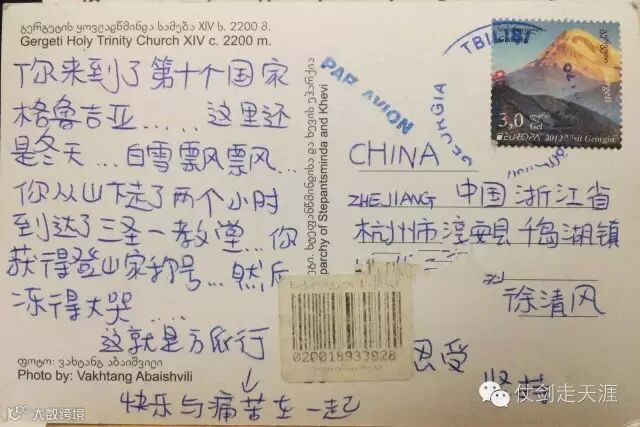 გერგეტის ყოვლადწმინდა სამება XIV ს. 2200 მ.
Gergeti Holy Trinity Church XIV c. 2200 m.
你来到了第十个国家
格鲁吉亚..... 这里还
是冬天... 白雪飘飘风...
你从山下走了两个小时
到达了三圣一教堂...你
获得登山家称号...然后
冻得大哭....
这就是万旅行
快乐与痛苦在一起
ფოტო: ვახტანგ აბაიშვილი
Photo by: Vakhtang Abaishvili
სტეფანწმინდისა და ხევის ეპარქია
parchy of Stepantsminda and Khevi
PAR AVION
TBILISI
GEORGIA
Georgia
Gergeti
3,0
Gel
EUROPA 2012 Visit Georgia
CHINA
ZHEJIANG 中国 浙江省
杭州市 淳安县 千岛湖镇
徐清风
020018933928
忍受
仗剑走天涯
大数跨境